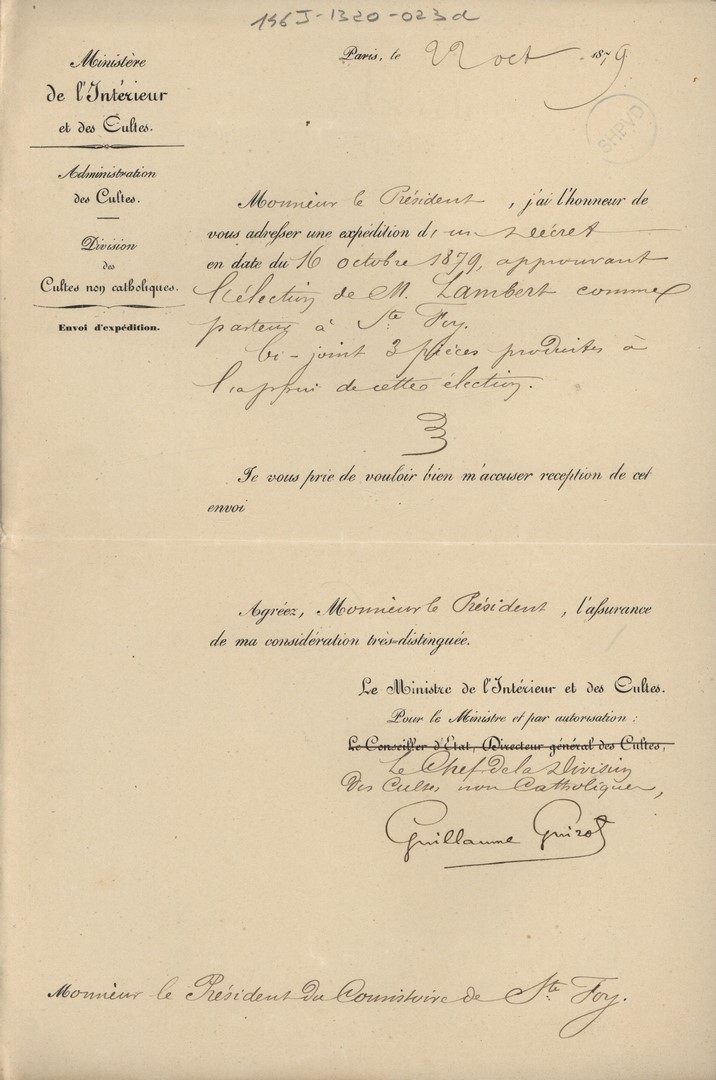 146J-1320-023d
Ministère
de l'Intérieur
et des Cultes.
Administration
des Cultes.
Division
des
Cultes non catholiques.
Envoi d'expédition.
Paris, le 22 oct 1879
SHPVD
Monsieur le Président, j'ai l'honneur de
vous adresser une expédition d'un Décret
en date du 16 octobre 1879, approuvant
l'élection de M. Lambert comme
pasteur à Ste Foy.
Ci-joint 3 pièces produites à
l'appui de cette élection.
Je vous prie de vouloir bien m'accuser reception de cet
envoi
Agréez, Monsieur le Président, l'assurance
de ma considération très-distinguée.
Le Ministre de l'Intérieur et des Cultes.
Pour le Ministre et par autorisation :
Le Conseiller d'Etat, Directeur général des Cultes,
Le Chef de la Division
des Cultes non Catholiques,
Guillaume Guizot
Monsieur le Président du Consistoire de Ste Foy.